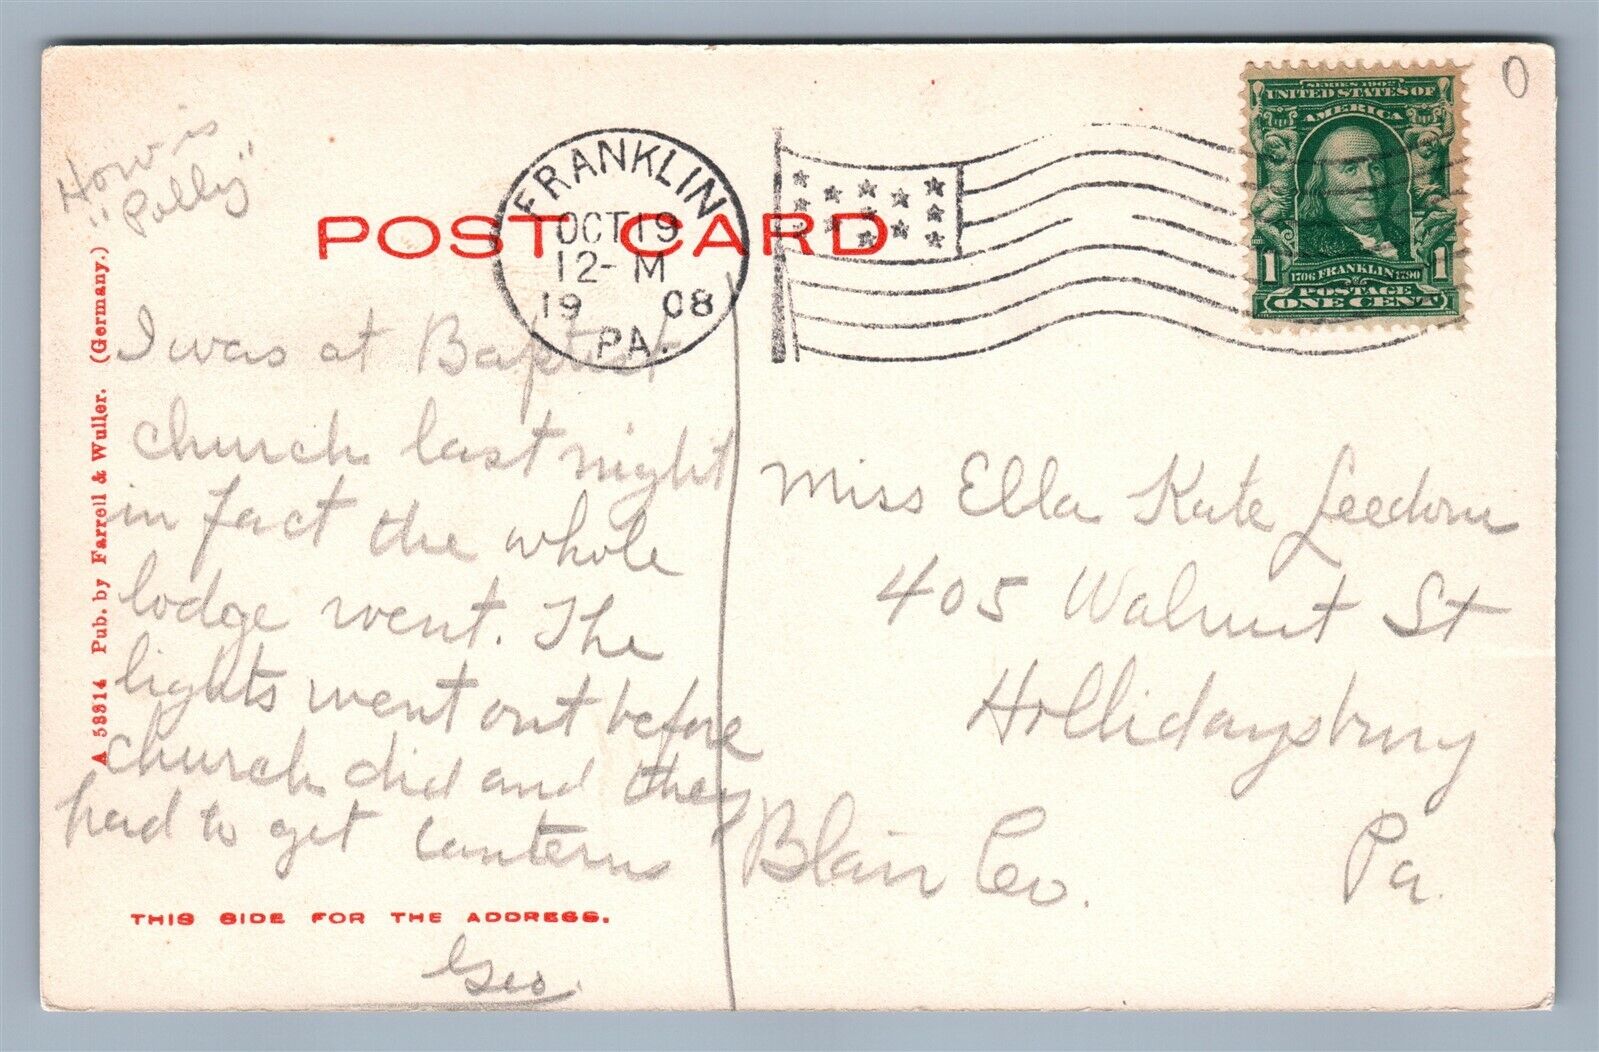 How is
"Polly"
POST CARD
FRANKLIN
OCT 19
12-M
19 08
PA.
SERIES 1902
UNITED STATES OF
AMERICA
1706 FRANKLIN 1790
1 1
POSTAGE
ONE CENT
O
A 53314 Pub. by Farrell & Wuller. (Germany.)
I was at Baptist
church last night
in fact the whole
lodge went. The
lights went out before
church did and they
had to get lanterns
Geo.
Miss Ella Kate Leedom
405 Walnut St
Hollidaysburg
Blair Co. Pa.
THIS SIDE FOR THE ADDRESS.